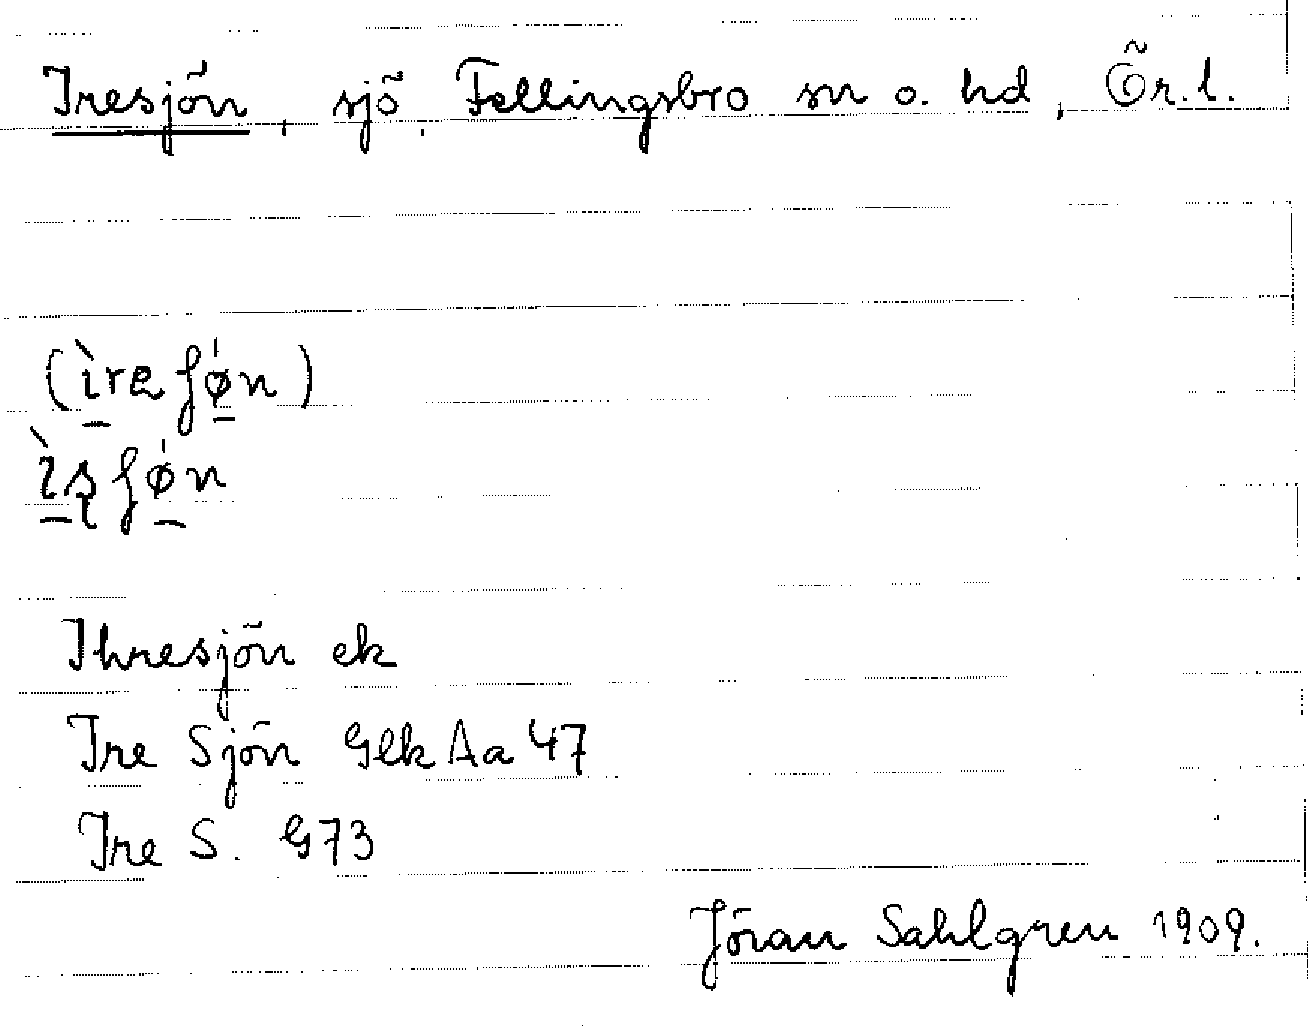 Iresjön, sjö, Fellingsbro sn o. hd, Ör.l.
(ìreʃø̀n)
ìʂʃø̀n
Ihresjön ek
Ire Sjön Glk Aa 47
Ire S. G73
Jöran Sahlgren 1909.